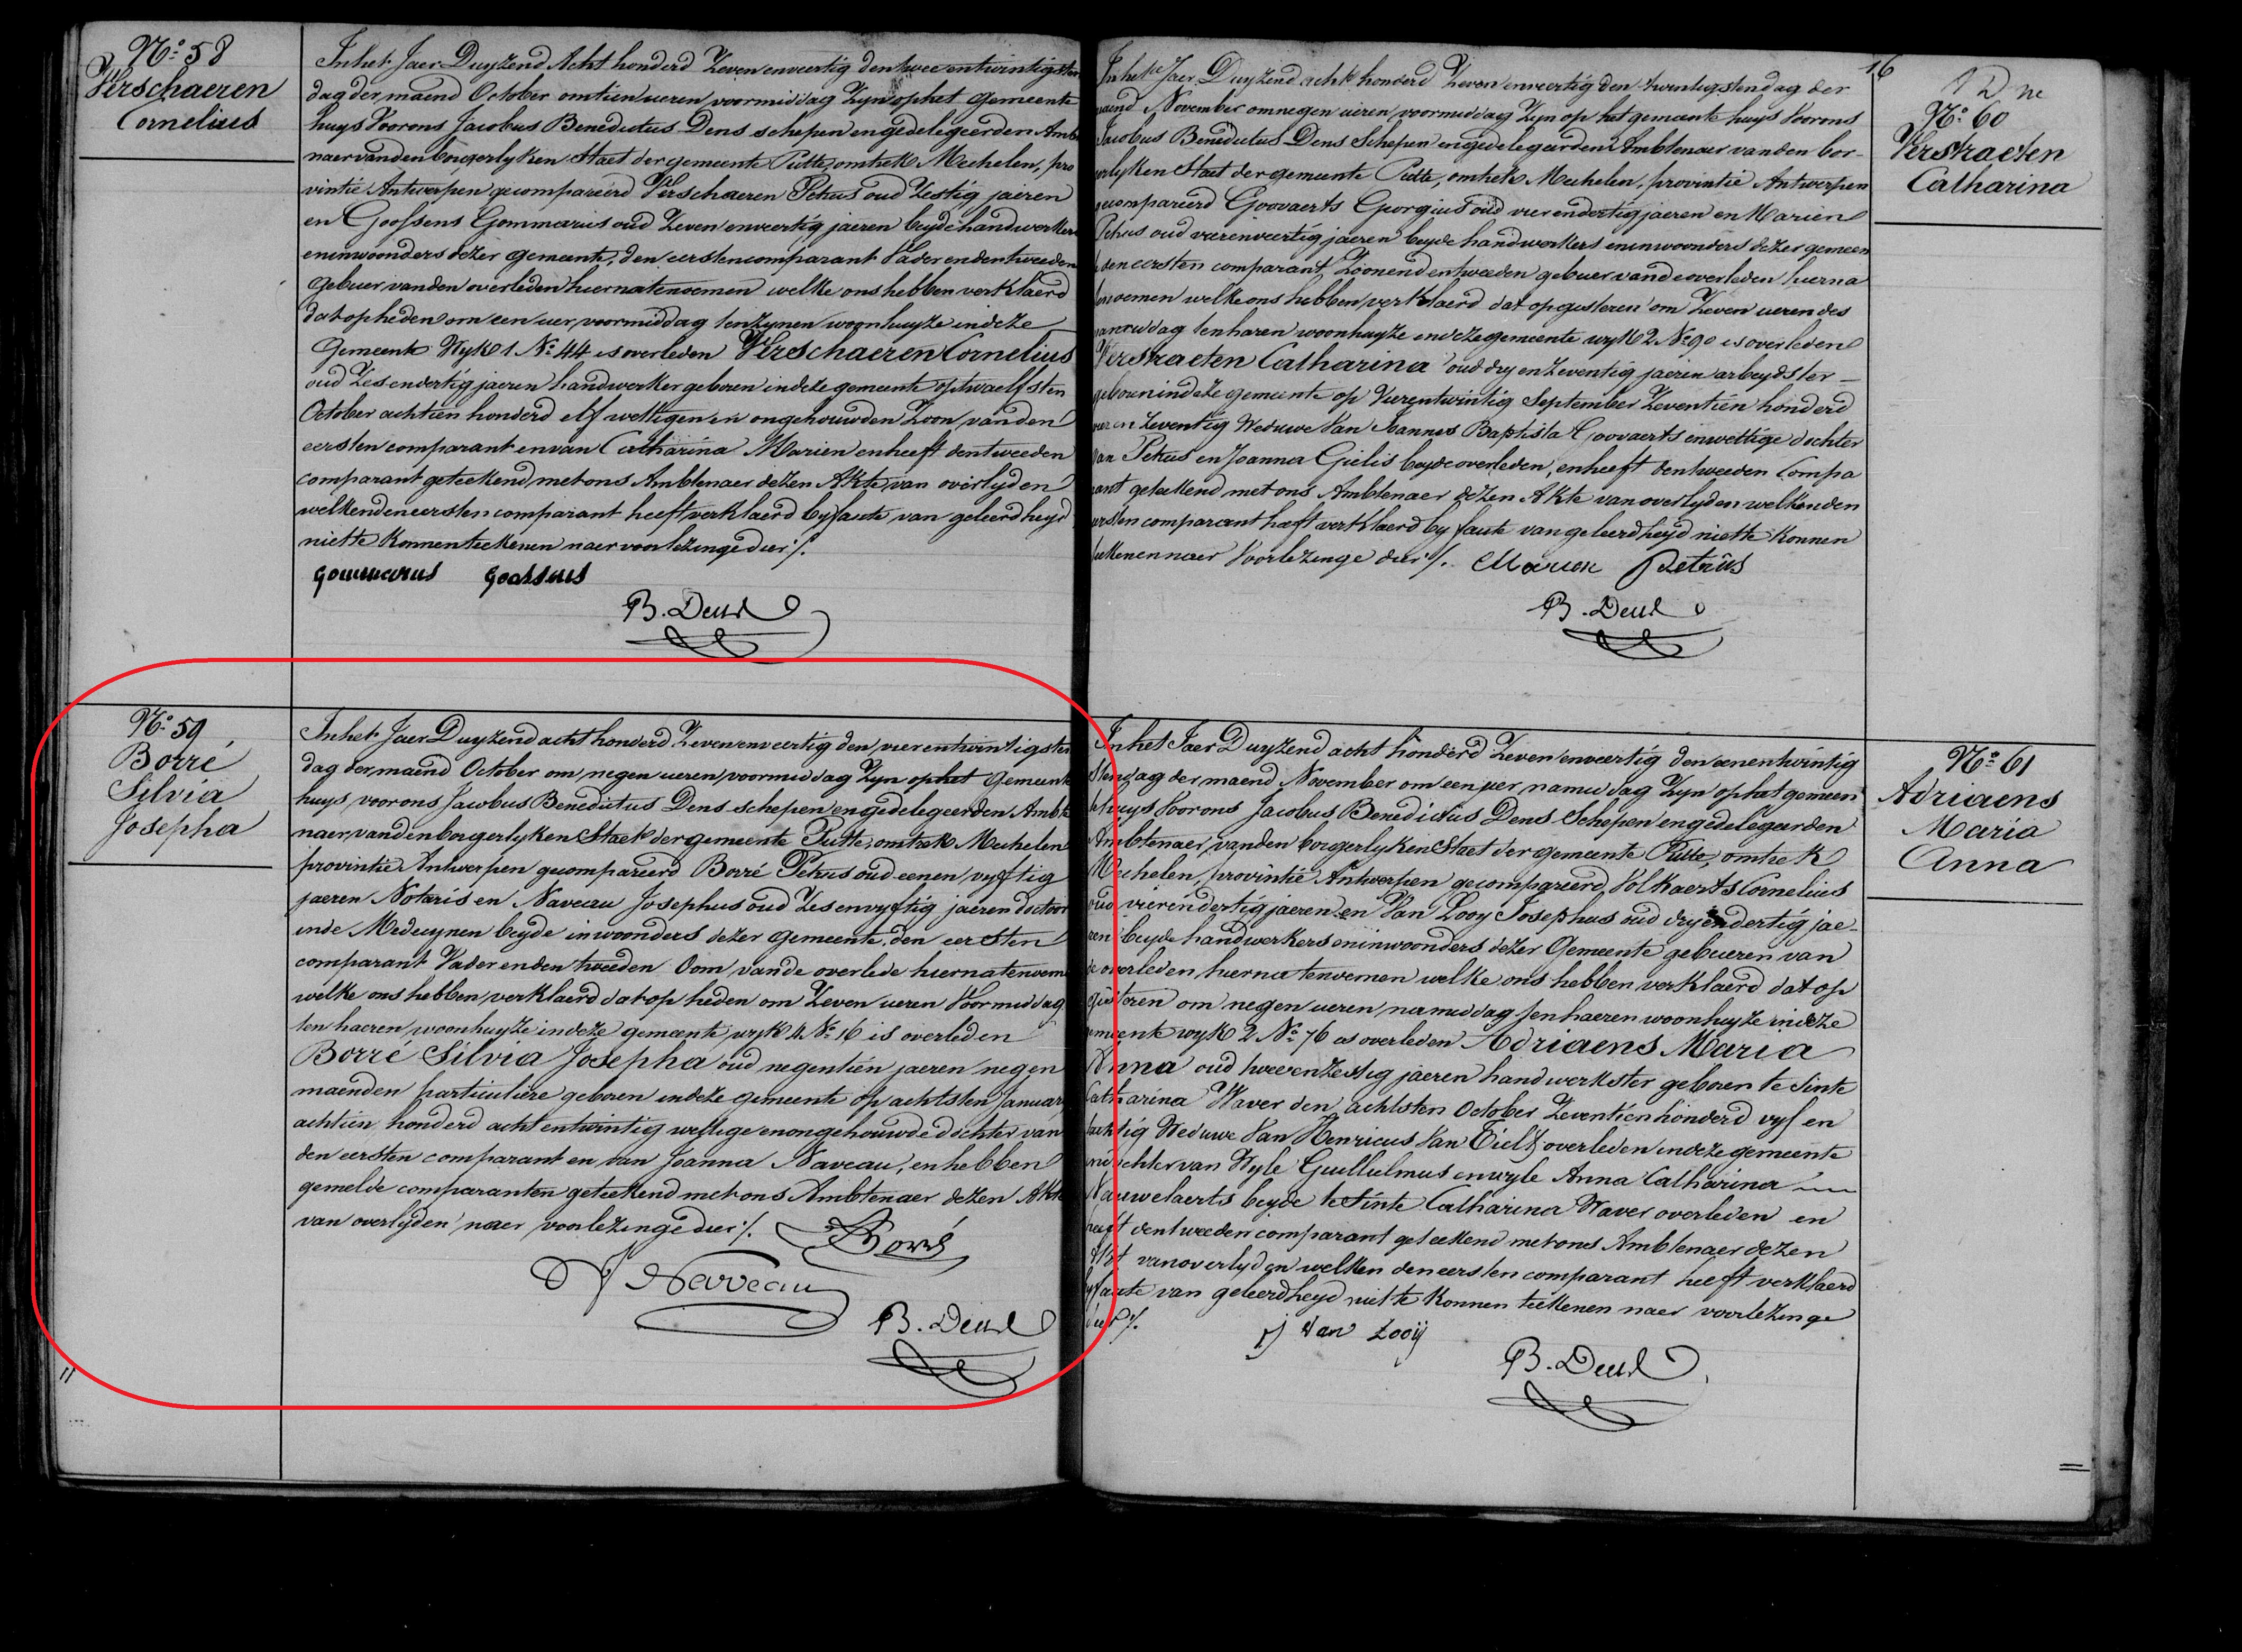 N.º 58
Verschaeren
Cornelius
In het Jaer Duyzend Acht honderd Zeven en veertig den twee en twintigsten
dag der maend October om tien ueren voormiddag Zyn op het gemeente
huys Voor ons Jacobus Benedictus Dens schepen en gedelegeerden Amb
naer van den borgerlyken Staet der gemeente Putte, omtrek Mechelen, pro
vintie Antwerpen gecompareerd Verschaeren Petrus oud Zestig jaeren
en Goossens Gommarius oud Zeven en veertig jaeren beyde handwerkers
en inwoonders dezer gemeente, den eersten comparant Vader en den tweeden
gebuer van den overleden hier na te noemen welke ons hebben verklaerd
dat op heden om een uer voormiddag ten zynen woonhuyze in deze
gemeente Wyk 1 Nº 44 is overleden Verschaeren Cornelius
oud Zes en dertig jaeren handwerker geboren in deze gemeente op twaelfsten
October achtien honderd elf wettigen en ongehouwden Zoon van den
eersten comparant en van Catharina Marien en heeft den tweeden
comparant geteekend met ons Amblenaer dezen Akte van overlyden
welken den eersten comparant heeft verklaerd by faute van geleerdheyd
niet te konnen teekenen naer voorlezinge dier ./.
Gommarus Goossens
B. Dens
N.º 59
Borré
Silvia
Josepha
In het Jaer Duyzend acht honderd Zeven en veertig den vier en twintigsten
dag der maend October om negen ueren voormiddag Zyn op het gemeente
huys, voor ons Jacobus Benedictus Dens schepen en gedelegeerden Ambte
naer van den borgerlyken Staet der gemeente Putte, omtrek Mechelen
provintie Antwerpen gecompareerd Borré Petrus oud eenen vyftig
jaeren Notaris en Naveau Josephus oud Zes en vyftig jaeren doctoor
in de Medecynen beyde inwoonders dezer gemeente, den eersten
comparant Vader en den tweeden Oom van de overlede hier na te noem
welke ons hebben verklaerd dat op heden om Zeven ueren Voormiddag
ten haeren woonhuyze in deze gemeente wyk 4 Nº 16 is overleden
Borré Silvia Josepha oud negentien jaeren negen
maenden particuliere geboren in deze gemeente op achtsten Januari
achtien honderd acht en twintig wettige en ongehouwde dochter van
den eersten comparant en van Joanna Naveau, en hebben
gemelde comparanten geteekend met ons Ambtenaer dezen Akte
van overlyden naer voorlezinge dier ./. Borré
Naveau
B. Dens
16
N.º 60
Verstraeten
Catharina
In het Jaer Duyzend acht honderd Zeven en veertig den twintigsten dag der
maend November om negen ueren voormiddag Zyn op het gemeente huys Voor ons
Jacobus Benedictus Dens Schepen en gedelegeerden Amblenaer van den bor-
gerlyken Staet der gemeente Putte, omtrek Mechelen, provintie Antwerpen
gecompareerd Goovaerts Georgius oud vier en dertig jaeren en Marien
Petrus oud vier en veertig jaeren beyde handwerkers en inwoonders dezer gemeen
te den eersten comparant Zoon en den tweeden gebuer van de overleden hier na
te noemen welke ons hebben verklaerd dat op gisteren om Zeven ueren des
namiddag ten haren woonhuyze in deze gemeente wyk 2 Nº 90 is overleden
Verstraeten Catharina oud dry en Zeventig jaeren arbeydster
geboren in deze gemeente op Vierentwintig September Zeventien honderd
vier en Zeventig Weduwe Van Joannes Baptista Goovaerts en wettige dochter
van Petrus en Joanna Gielis beyde overleden, en heeft den tweeden Compa
rant geteekend met ons Amblenaer dezen Akte van overlyden welken den
eersten comparant heeft verklaerd by faute van geleerdheyd niet te konnen
teekenen naer Voorlezinge dier ./. Marien Petrus
B. Dens
N.º 61
Adriaens
Maria
Anna
In het Jaer Duyzend acht honderd Zeven en veertig den eenentwintig
sten dag der maend November om een uer namiddag Zyn op het gemeen
te huys Voor ons Jacobus Benedictus Dens Schepen en gedelegeerden
Ambtenaer van den borgerlyken Staet der gemeente Putte, omtrek
Mechelen, provintie Antwerpen gecompareerd Volkaerts Cornelius
oud vierendertig jaeren en Van Looy Josephus oud dry en dertig jae-
ren beyde handwerkers en inwoonders dezer Gemeente gebueren van
de overleden hier na te noemen welke ons hebben verklaerd dat op
gisteren om negen ueren namiddag ten haeren woonhuyze in deze
gemeente wyk 2 Nº 76 is overleden Adriaens Maria
Anna oud twee en Zestig jaeren handwerkster geboren te Sinte
Catharina Waver den achtsten October Zeventien honderd vyf en
tachtig Weduwe Van Henricus Van Tielt overleden in deze gemeente
en dochter van Wyle Guillielmus en wyle Anna Catharina
Nauwelaerts beyde te Sinte Catharina Waver overleden en
heeft den tweeden comparant geteekend met ons Amblenaer dezen
Akt van overlyden welken den eersten comparant heeft verklaerd
by faute van geleerdheyd niet te konnen teekenen naer voorlezinge
dier ./.
J Van Looÿ
B. Dens